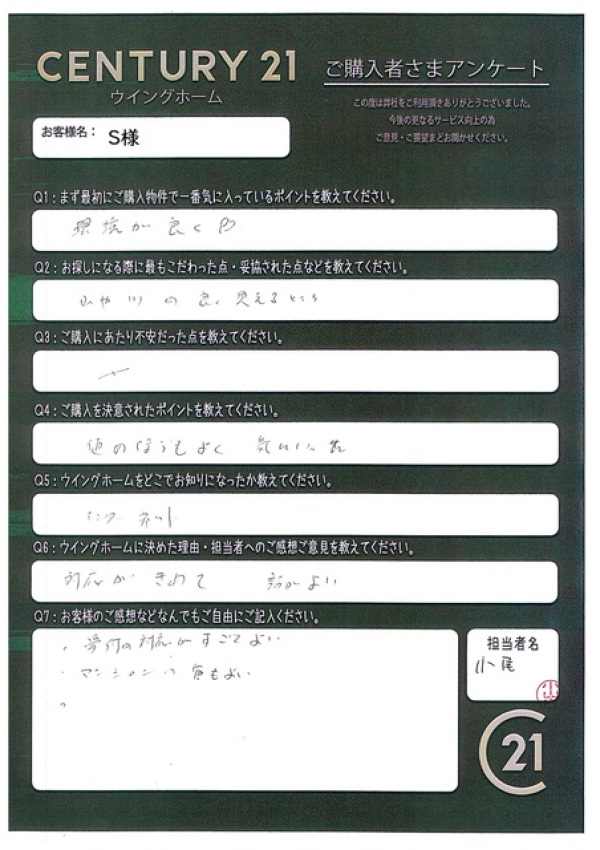 CENTURY 21
ウイングホーム
ご購入者さまアンケート
この度は弊社をご利用頂きありがとうございました。
今後の更なるサービス向上の為
ご意見・ご要望までお聞かせください。
お客様名: S様
Q1:まず最初にご購入物件で一番気に入っているポイントを教えてください。
環境が良く
Q2:お探しになる際に最もこだわった点・妥協された点などを教えてください。
山や川の良く見えるところ
Q3:ご購入にあたり不安だった点を教えてください。
Q4:ご購入を決意されたポイントを教えてください。
よく 気に
Q5:ウイングホームをどこでお知りになったか教えてください。
インターネット
Q6:ウイングホームに決めた理由・担当者へのご感想ご意見を教えてください。
対応が きめて 話がよい
Q7:お客様のご感想などなんでもご自由にご記入ください。
・受付の対応がすごてよい
・マンションの もよい
担当者名
小尾
21